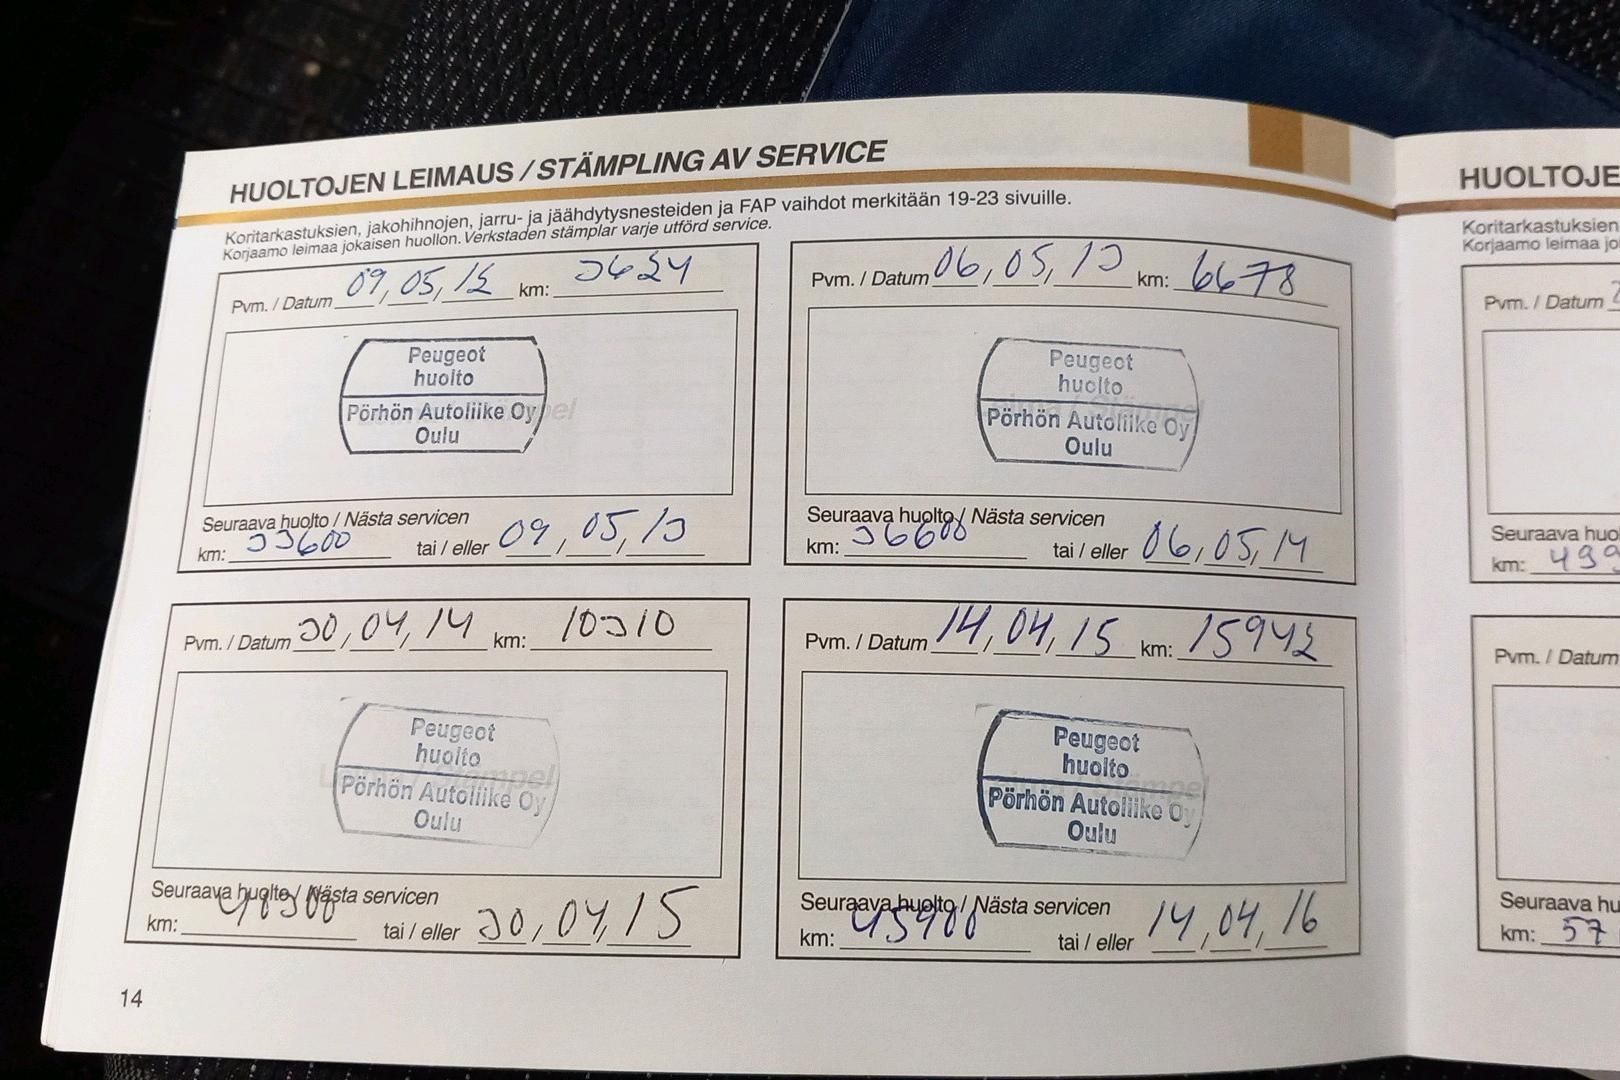 HUOLTOJEN LEIMAUS / STÄMPLING AV SERVICE
Koritarkastuksien, jakohihnojen, jarru- ja jäähdytysnesteiden ja FAP vaihdot merkitään 19-23 sivuille.
Korjaamo leimaa jokaisen huollon. Verkstaden stämplar varje utförd service.
Pvm. / Datum 09, 05, 12 km: 3624
Peugeot
huolto
Pörhön Autoliike Oy
Oulu
Seuraava huolto / Nästa servicen
km: 33600 tai / eller 09, 05, 13
Pvm. / Datum 06, 05, 13 km: 6678
Peugeot
huolto
Pörhön Autoliike Oy
Oulu
Seuraava huolto / Nästa servicen
km: 36600 tai / eller 06, 05, 14
Pvm. / Datum 30, 04, 14 km: 10310
Leima / Stämpel
Peugeot
huolto
Pörhön Autoliike Oy
Oulu
Seuraava huolto / Nästa servicen
km: 40300 tai / eller 30, 04, 15
Pvm. / Datum 14, 04, 15 km: 15942
Peugeot
huolto
Pörhön Autoliike Oy
Oulu
Seuraava huolto / Nästa servicen
km: 45900 tai / eller 14, 04, 16
14
HUOLTOJE
Koritarkastuksien
Korjaamo leimaa jo
Pvm. / Datum
Seuraava huo
km: 499
Pvm. / Datum
Seuraava hu
km: 57